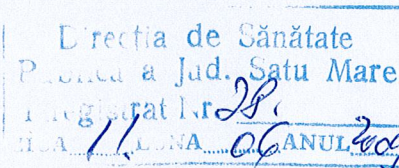 Direcția de Sănătate
Publică a Jud. Satu Mare
Înregistrat Nr. 28.
ZIUA 11. LUNA 06 ANUL